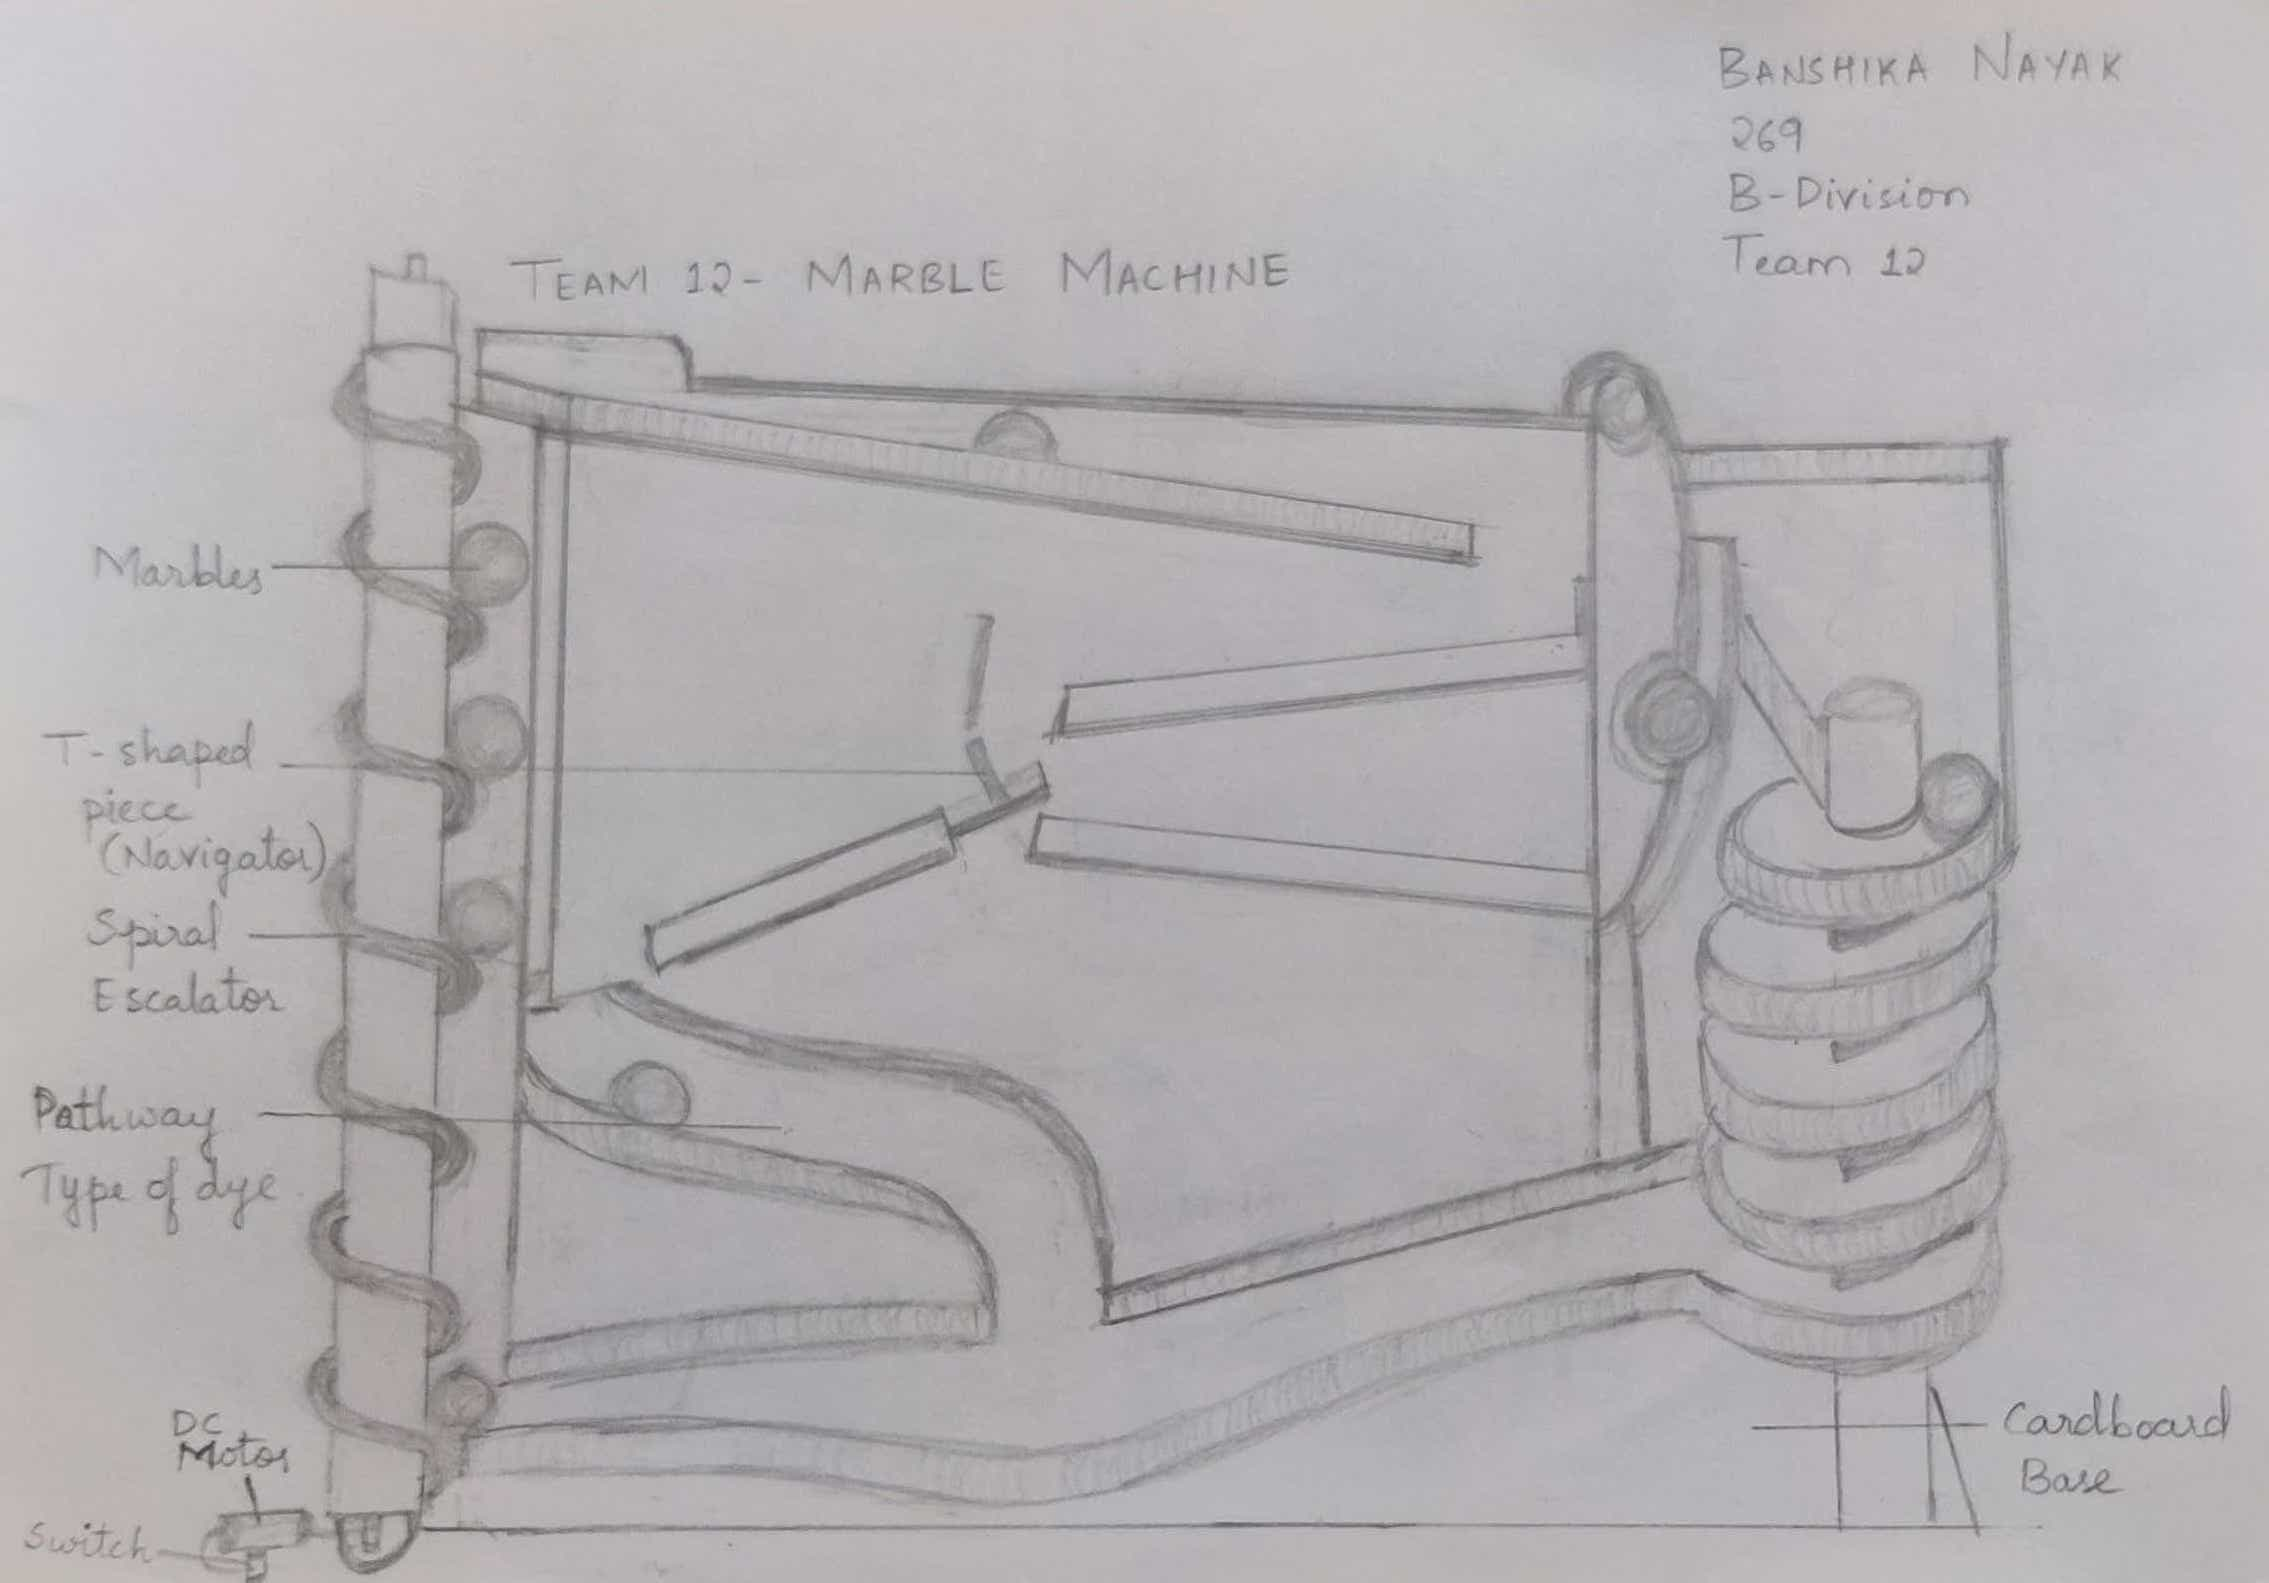 BANSHIKA NAYAK
269
B-Division
Team 12
TEAM 12- MARBLE MACHINE
Marbles
T-shaped
piece
(Navigator)
Spiral
Escalator
Pathway
Type of dye
DC
Motor
Switch
Cardboard
Base